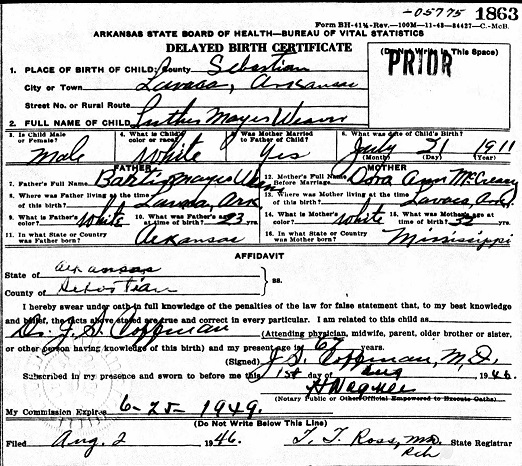 —05775 1863
Form BH-41½-Rev.—100M—11-43—84427—C.-McB.
ARKANSAS STATE BOARD OF HEALTH—BUREAU OF VITAL STATISTICS
DELAYED BIRTH CERTIFICATE
(Do Not Write In This Space)
PRIOR
1. PLACE OF BIRTH OF CHILD: County Sebastian
City or Town Lavaca, Arkansas
Street No. or Rural Route
2. FULL NAME OF CHILD Luther Mayes Weaver
3. Is Child Male or Female? Male
4. What is Child's color or race? White
5. Was Mother Married to Father of Child? Yes
6. What was date of Child's Birth? July 21 1911
(Month) (Day) (Year)
FATHER
7. Father's Full Name Mayes
8. Where was Father living at the time of this birth? Lavaca, Ark
9. What is Father's color? White
10. What was Father's age at time of birth? 23 yrs.
11. In what State or Country was Father born? Arkansas
MOTHER
12. Mother's Full Name Before Marriage Ora Ann McCreary
13. Where was Mother living at time of this birth? Lavaca, Ark.
14. What is Mother's color? White
15. What was Mother's age at time of birth? yrs.
16. In what State or Country was Mother born? Mississippi
AFFIDAVIT
State of Arkansas
County of Sebastian ss.
I hereby swear under oath in full knowledge of the penalties of the law for false statement that, to my best knowledge
and belief, the facts above stated are true and correct in every particular. I am related to this child as
Dr. J. S. Coffman (Attending physician, midwife, parent, older brother or sister,
or other person having knowledge of this birth) and my present age is 67 years.
(Signed) J. S. Coffman, M.D.
Subscribed in my presence and sworn to before me this 1st day of Aug 1946.
(Notary Public or Other Official Empowered to Execute Oaths)
My Commission Expires 6-25-1949.
(Do Not Write Below This Line)
Filed Aug. 2 1946. T. T. Ross, MD. State Registrar